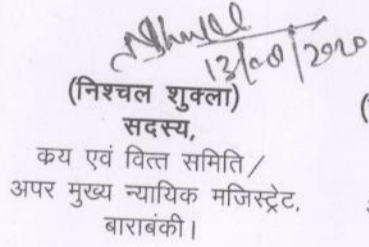 13/08/2020
(निश्चल शुक्ला)
सदस्य,
कय एवं वित्त समिति /
अपर मुख्य न्यायिक मजिस्ट्रेट,
बाराबंकी।